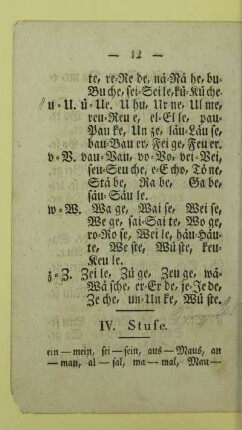 — 12 —
te, re-Re de, nä-Nä he, bu-
Bu che, sei-Sei le, kü-Kü che.
u - U. ü - Ue. U hu, Ur ne, Ul me,
reu-Reu e, el-El le, pau-
Pau ke, Un ze, läu-Läu se,
bau-Bau er, Fei ge, Feu er.
v - V. vau-Vau, vo-Vo, vei-Vei,
seu-Seu che, e-E cho, Tö ne,
Stä be, Ra be, Ga be,
säu-Säu le.
w - W. Wa ge, Wai se, Wei se,
We ge, sai-Sai te, Wo ge,
ro-Ro se, Wei le, häu-Häu-
te, We ste, Wü ste, keu-
Keu le.
z - Z. Zei le, Zü ge, Zeu ge, wä-
Wä sche, er-Er de, je-Je de,
Ze che, un-Un ke, Wü ste.
IV. Stufe.
ein — mein, sei — sein, aus — Maus, an
— man, al — sal, ma — mal, Mau —